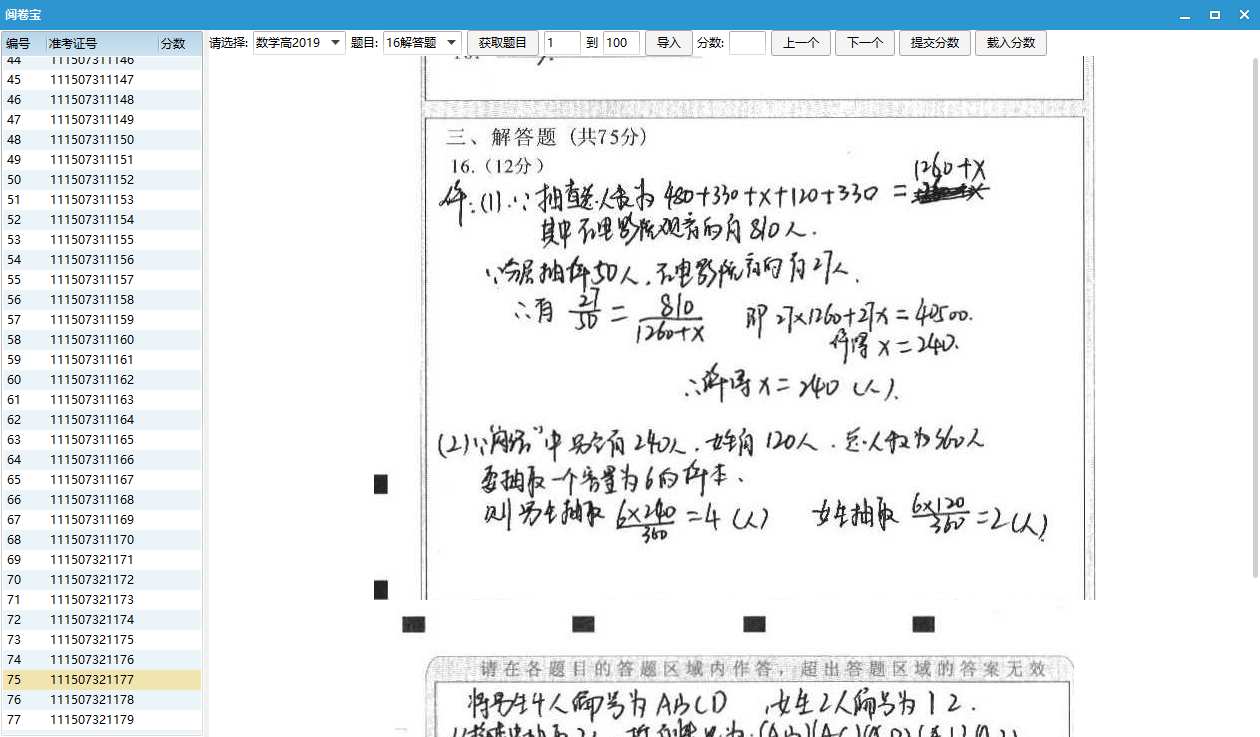 阅卷宝
编号 准考证号 分数 请选择: 数学高2019 题目: 16解答题 获取题目 1 到 100 导入 分数: 上一个 下一个 提交分数 载入分数
44 111507311146
45 111507311147
46 111507311148
47 111507311149
48 111507311150
49 111507311151
50 111507311152
51 111507311153
52 111507311154
53 111507311155
54 111507311156
55 111507311157
56 111507311158
57 111507311159
58 111507311160
59 111507311161
60 111507311162
61 111507311163
62 111507311164
63 111507311165
64 111507311166
65 111507311167
66 111507311168
67 111507311169
68 111507311170
69 111507321171
70 111507321172
71 111507321173
72 111507321174
73 111507321175
74 111507321176
75 111507321177
76 111507321178
77 111507321179
三、解答题 (共75分)
16.(12分)
解:(1).∵抽查总人数为 480+330+x+120+330 = 1260+x
其中在电影院观看的有810人.
∵分层抽样50人.在电影院看的有27人.
∴有 27/50 = 810/1260+x 即 27×1260+27x=40500.
解得 x=240.
∴解得x=240 (人).
(2)∵"网络"中男生有240人.女生有120人.总人数为360人
要抽取一个容量为6的样本.
则男生抽取 6×240/360=4(人) 女生抽取 6×120/360=2(人).
请在各题目的答题区域内作答,超出答题区域的答案无效
将男生4人编号为ABCD 女生2人编号为12.